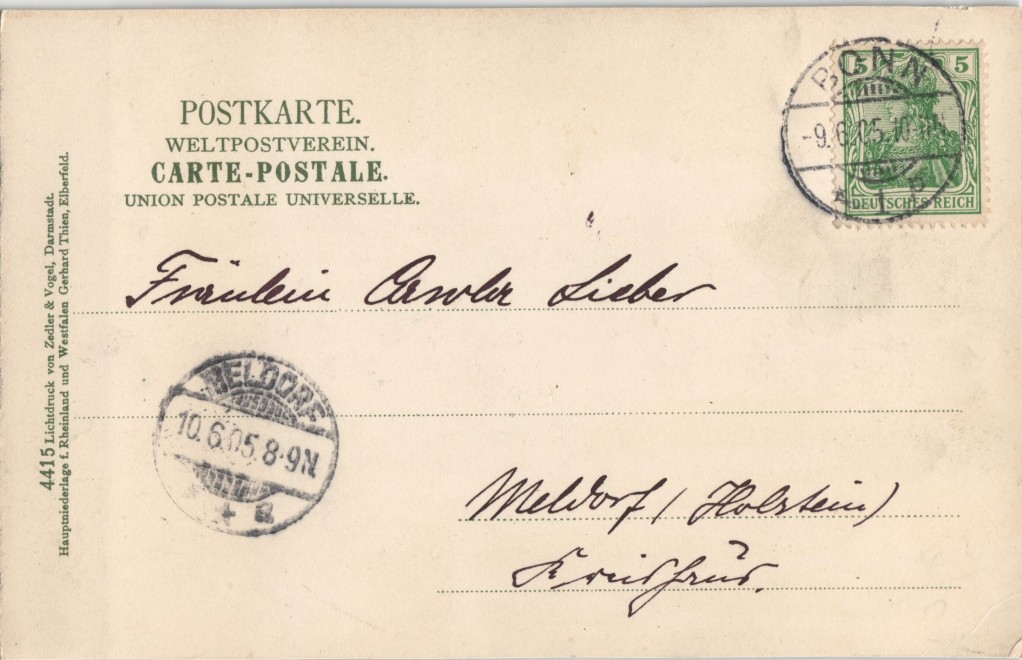 POSTKARTE.
WELTPOSTVEREIN.
CARTE-POSTALE.
UNION POSTALE UNIVERSELLE.
5 5
DEUTSCHES REICH
BONN
-9.6.05.10
* 1 b
4415 Lichtdruck von Zedler & Vogel, Darmstadt.
Hauptniederlage f. Rheinland und Westfalen Gerhard Thien, Elberfeld.
Fräulein Lieber
MELDORF
10.6.05.8-9N
* a
Meldorf (Holstein)
Kreishaus.